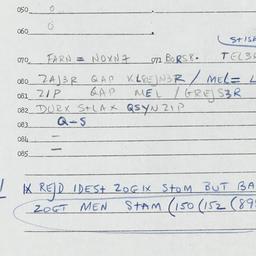 050 0
060 0
STISK
070 FARN = NOXNZ 071 BORSK.
080 ZAJ3R QAP / MEL =
081 ZIP QAP MEL / GREJS3R
082 DURX STLAX QSYNZIP
083 Q-S
084 =
085 =
IX REJD IDEST ZOGIX STOM BUT BA
ZOGT MEN STAM (150 (152 (89